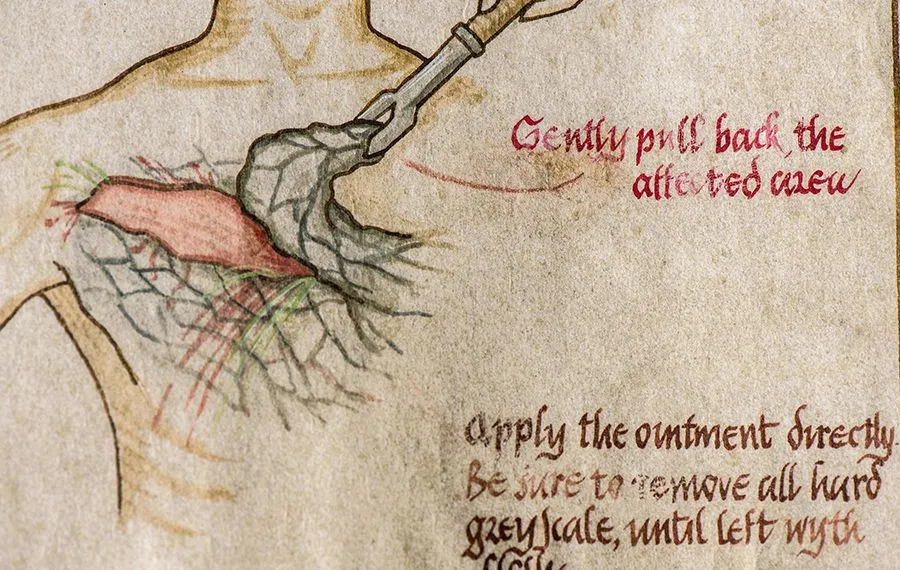 Gently pull back, the
affected area
Apply the ointment directly.
Be sure to remove all hard
greyscale, until left wyth